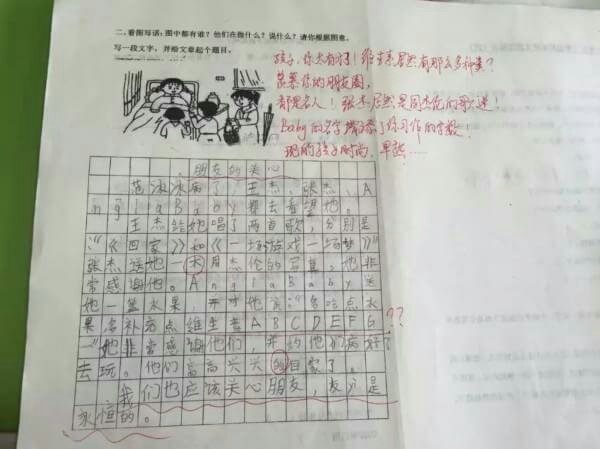 二、看图写话：图中都有谁？他们在做什么？说什么？请你根据图意，
写一段文字，并给文章起个题目。
孩子，你太有才了！维生素居然有那么多种类？
羡慕你的朋友圈，
都是名人！张杰居然是周杰伦的歌迷！
Baby的名字撑添了你习作的字数！
现的孩子时尚，早熟……
朋友的关心
范冰冰病了，王杰、张杰、A
ngla Baby都去看望她。
王杰给她唱了两首歌，分别是
：“《回家》和《一场游戏一场梦》”
张杰送她一本周杰伦的写真，他非
常感谢他。Anglababy送
她一篮水果，并对她说：“多吃点水
果，多补充点维生素ABCDEFG ??
”她非常感谢他们，并约他们病好了
去玩。他们高高兴兴的回家了。
我们也应该关心朋友，友谊是
永恒的。